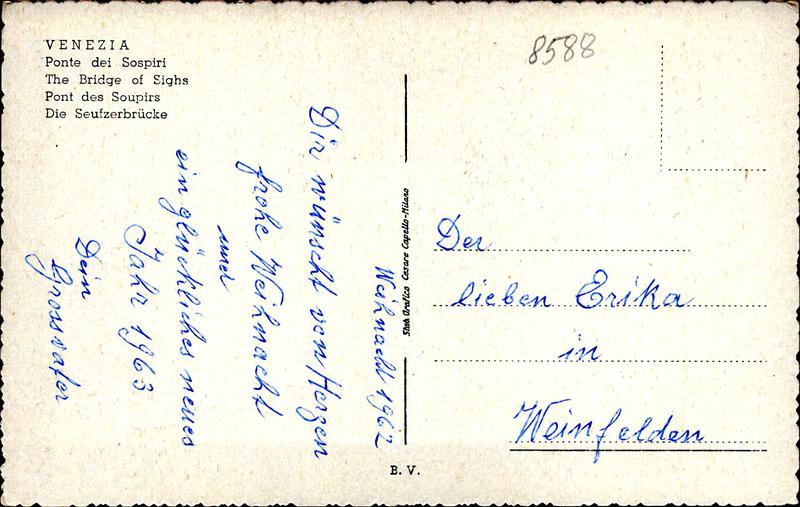 VENEZIA
Ponte dei Sospiri
The Bridge of Sighs
Pont des Soupirs
Die Seufzerbrücke
8588
Weihnacht 1962
Dir wünscht von Herzen
frohe Weihnacht
und
ein glückliches neues
Jahr 1963.
Dein
Grossvater
Stab. Grafico Cesare Capello-Milano
B. V.
Der
lieben Erika
in
Weinfelden